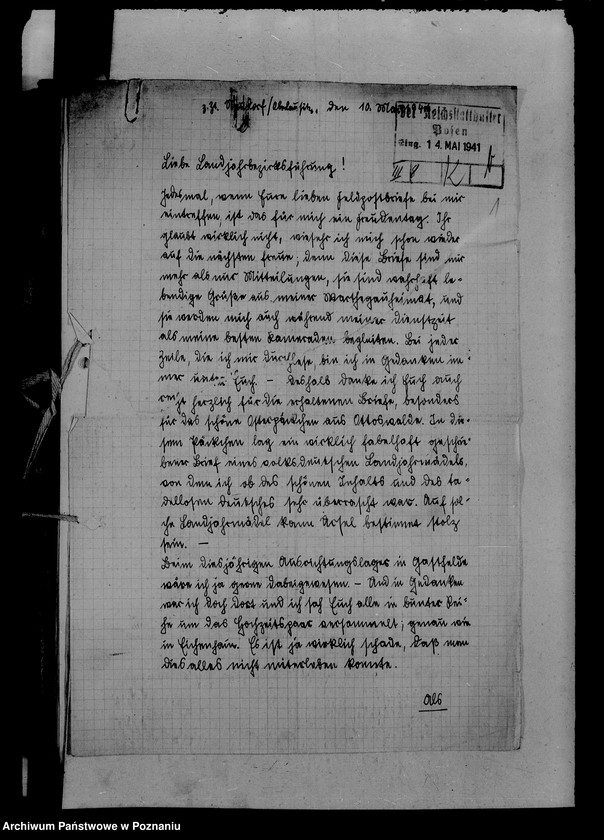 z. Zt. /Oberlausitz, den 10. Mai 1941
Der Reichsstatthalter
Posen
Eing. 14. MAI 1941
1
Liebe Landjahrbezirksführung!
Jedesmal, wenn Eure lieben Feldpostbriefe bei mir
eintreffen, ist das für mich ein Freudentag. Ihr
glaubt wirklich nicht, wiesehr ich mich schon wieder
auf die nächsten freue; denn diese Briefe sind mir
mehr als nur Mitteilungen, sie sind wahrhaft le-
bendige Grüße aus meiner Warthegauheimat, und
sie werden mich auch während meiner Dienstzeit
als meine besten Kameraden begleiten. Bei jeder
Zeile, die ich mir durchlese, bin ich in Gedanken im-
mer unter Euch. - Deshalb danke ich Euch auch
recht herzlich für die erhaltenen Briefe, besonders
für das schöne Osterpäckchen aus Ottoswalde. In die-
sem Päckchen lag ein wirklich fabelhaft geschrie-
bener Brief eines volksdeutschen Landjahrmädels,
von dem ich ob des schönen Inhalts und des ta-
dellosen Deutsches sehr überrascht war. Auf sol-
che Landjahrmädel kann Ursel bestimmt stolz
sein. -
Beim diesjährigen Ausrichtungslager in Gastfelde
wäre ich ja gerne dabeigewesen. - Und in Gedanken
war ich doch dort und ich sah Euch alle in bunter Rei-
he um das Hochzeitspaar versammelt; genau wie
in Eichenhain. Es ist ja wirklich schade, daß man
dies alles nicht miterleben konnte.
Als
Archiwum Państwowe w Poznaniu